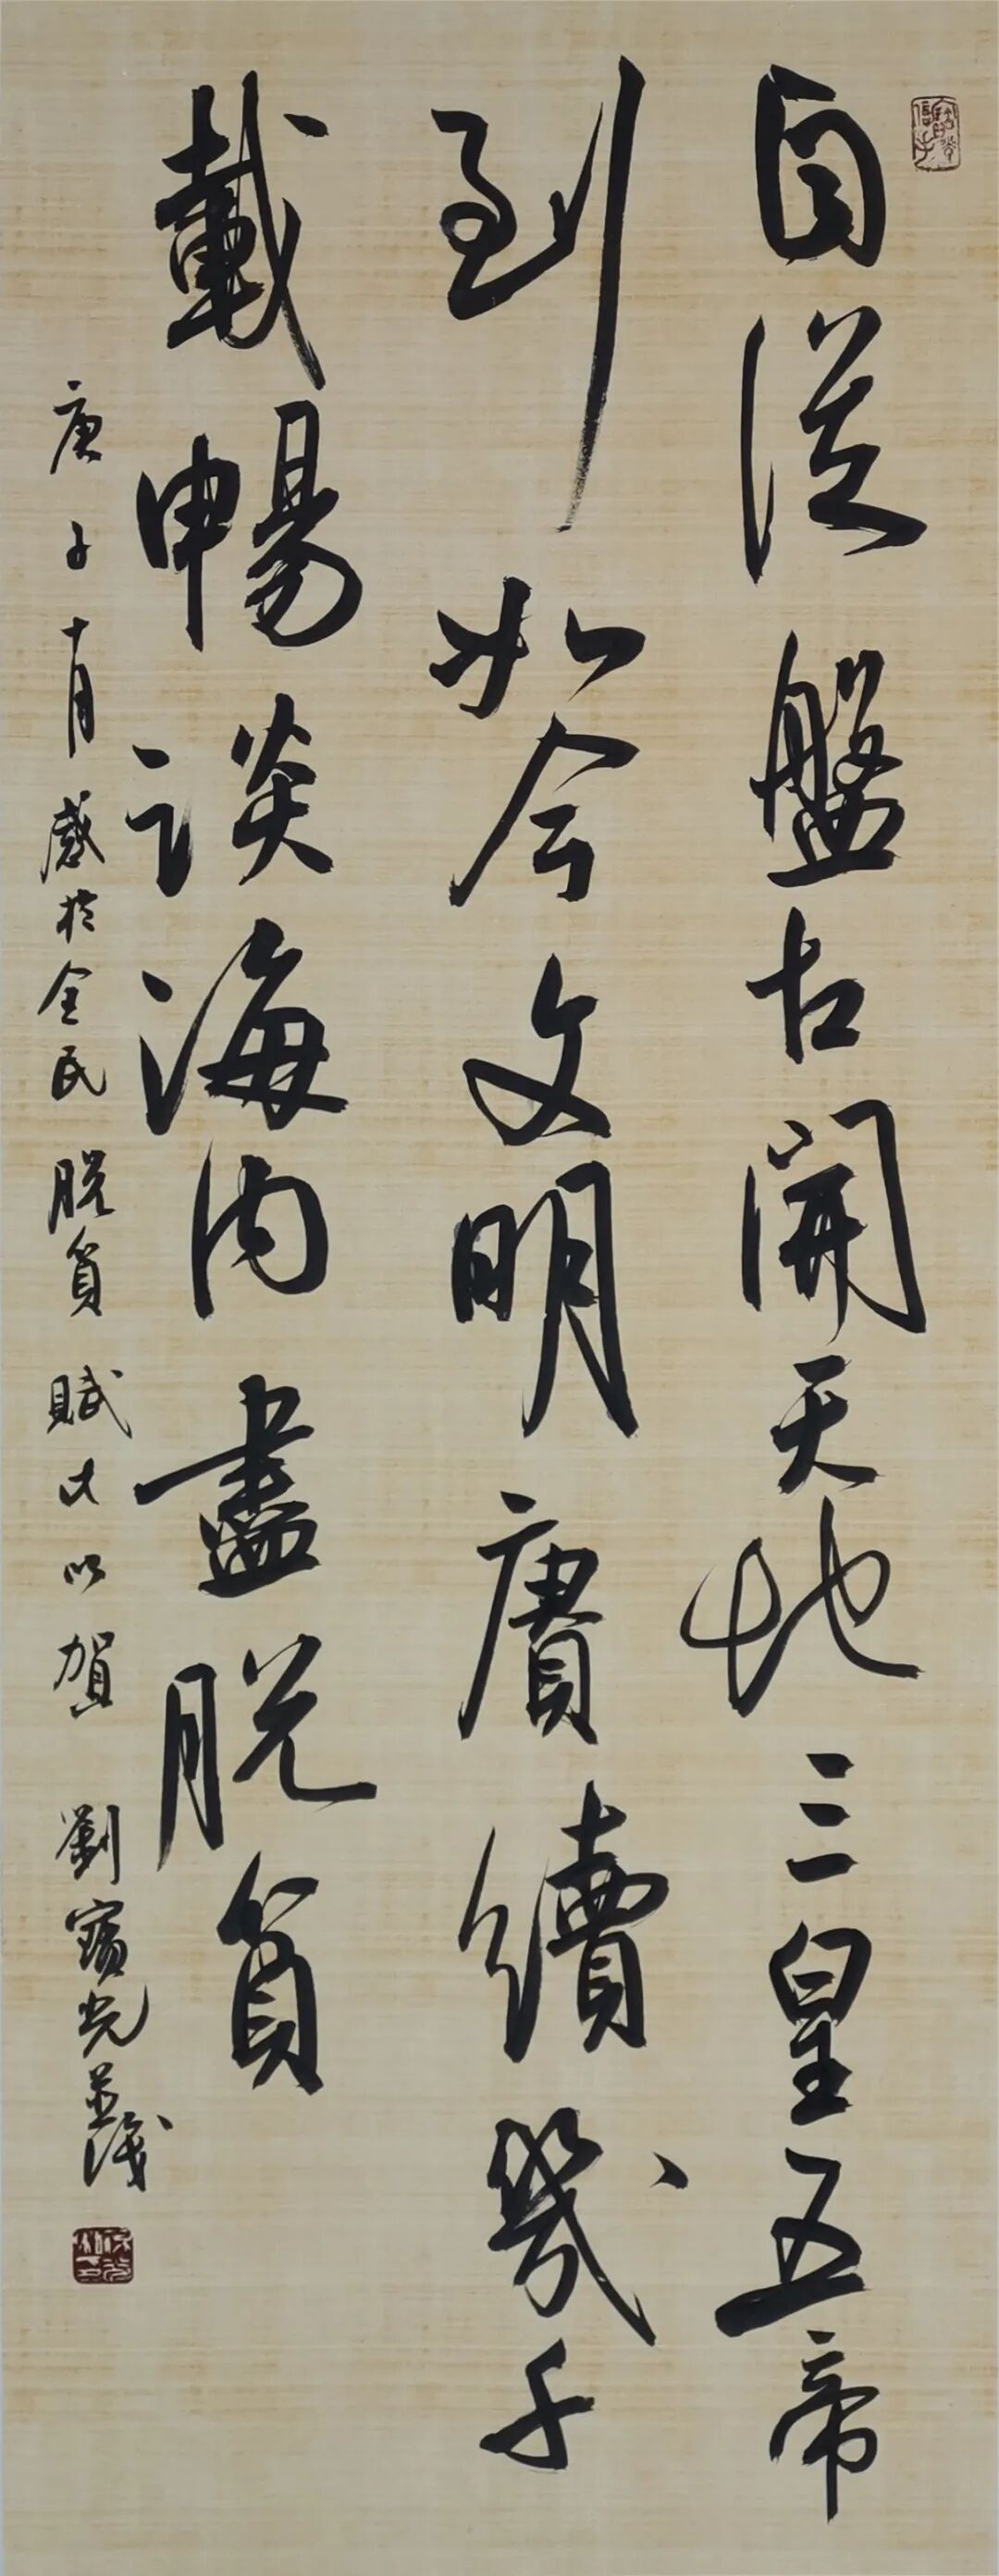 自從盤古開天地三皇五帝
到如今文明賡續幾千
載暢談海内盡脫貧
庚子十月感於全民脫貧賦此以賀 劉寶光並識